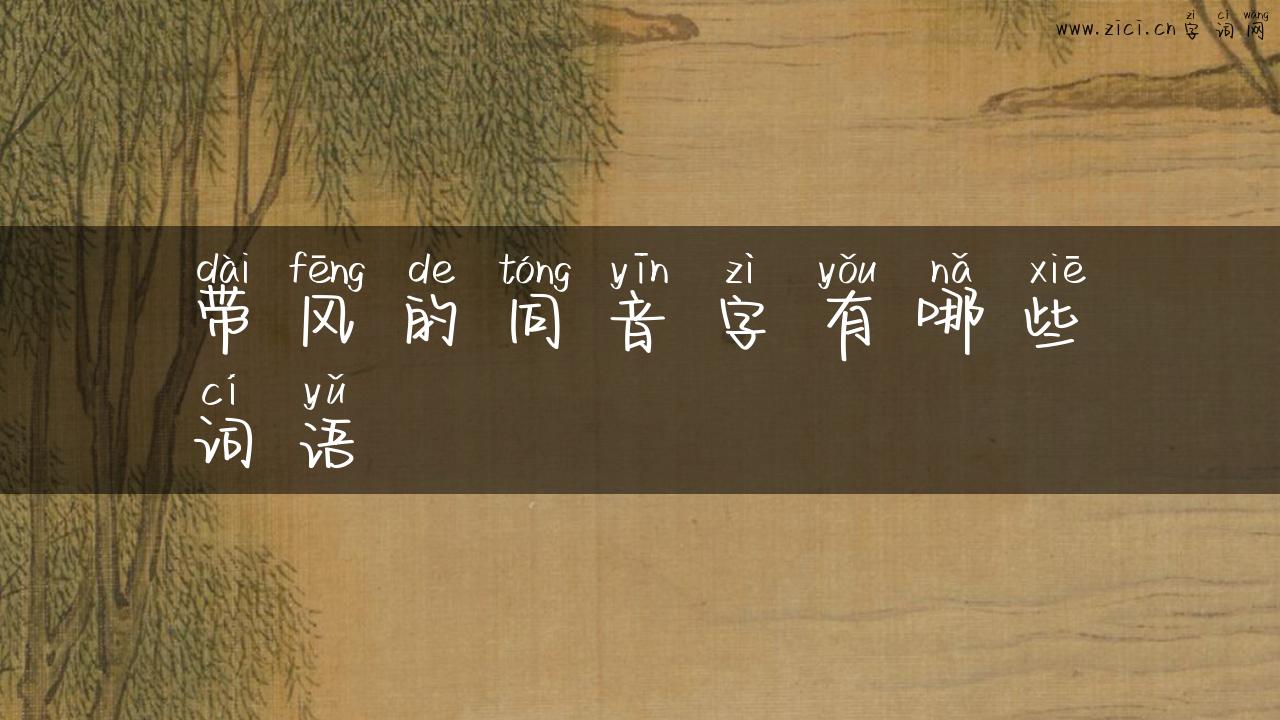 zì cí wǎng
www.zici.cn字词网
dài fēng de tóng yīn zì yǒu nǎ xiē
带风的同音字有哪些
cí yǔ
词语